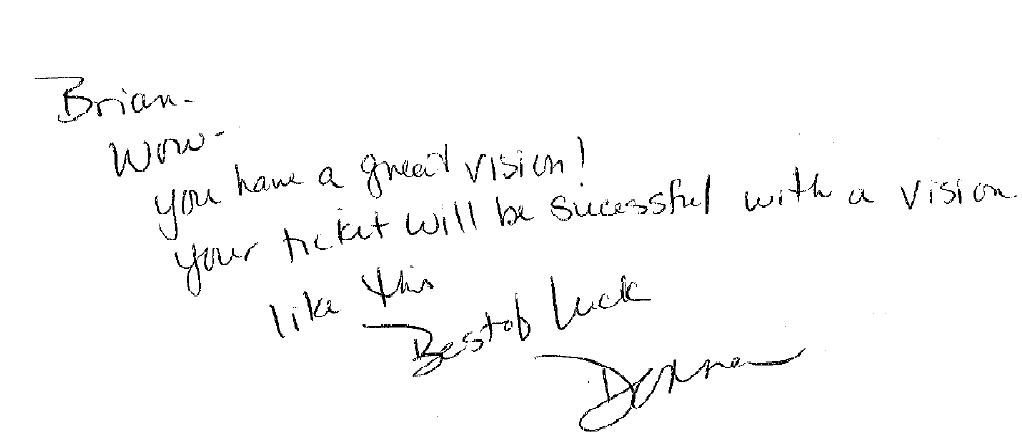 Brian-
Wow-
you have a great vision!
your ticket will be sucessful with a vision
like this
Best of Luck
Donna